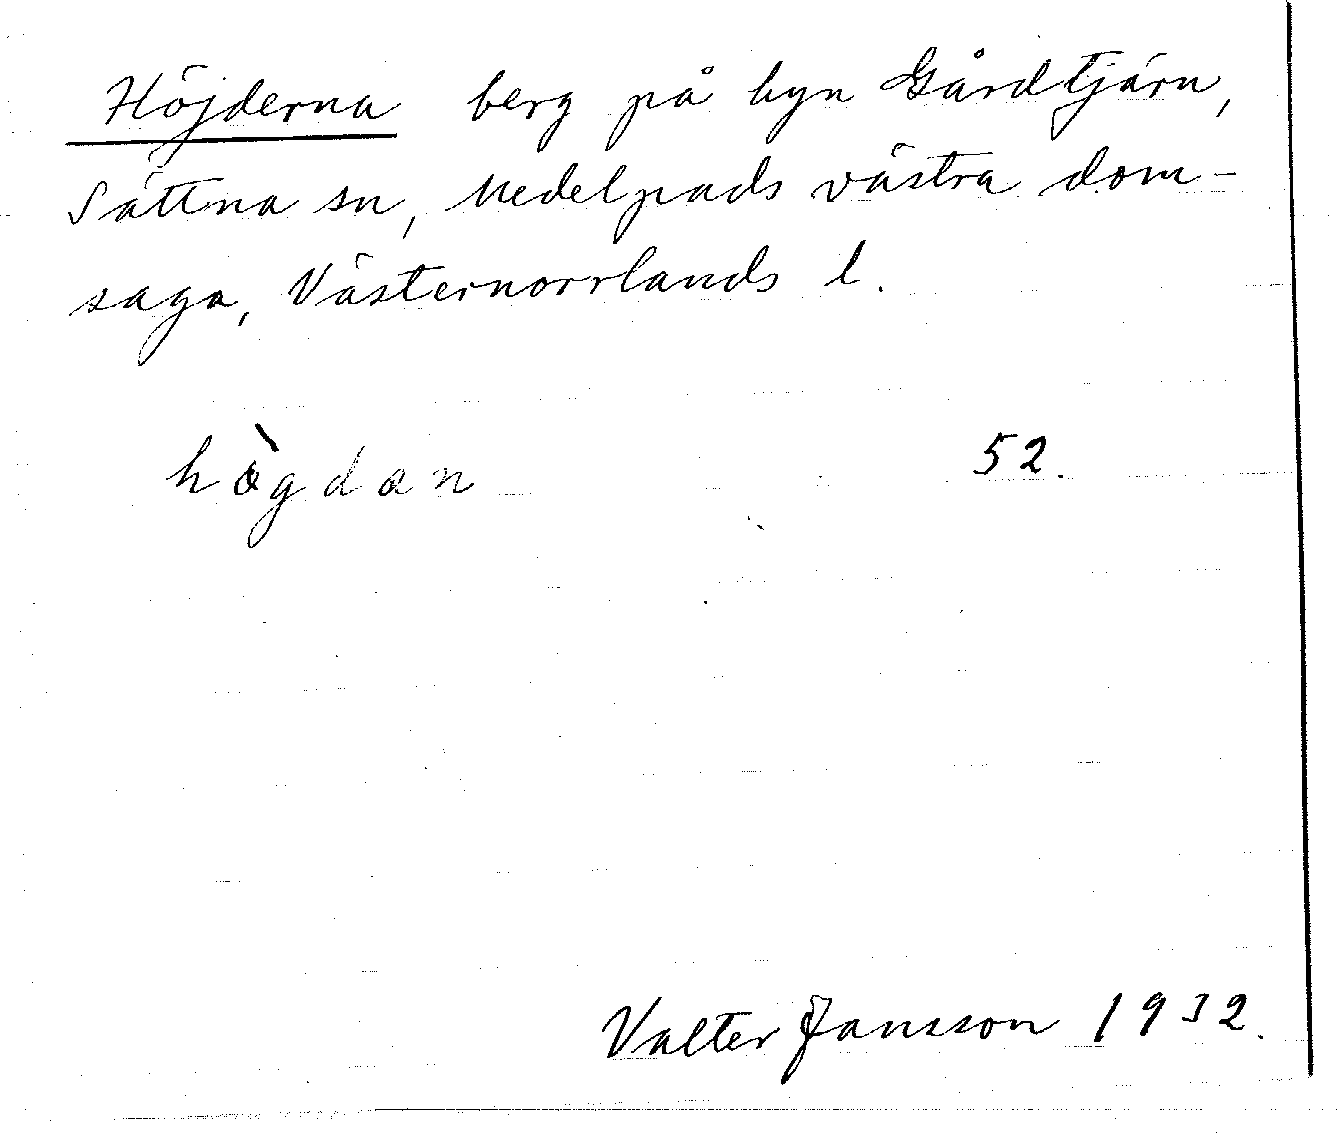 Höjderna berg på byn Gårdtjärn,
Sättna sn, Medelpads västra dom-
saga, Västernorrlands l.
hò̀gdan 52.
Valter Jansson 1932.